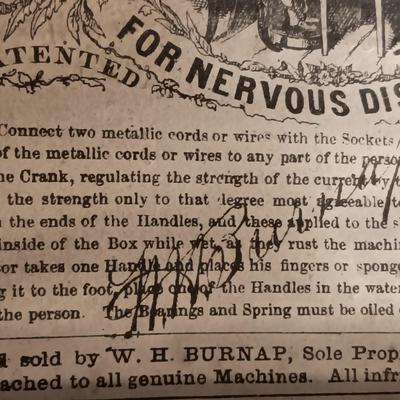 ATENTED
FOR NERVOUS DIS
Connect two metallic cords or wires with the Sockets
of the metallic cords or wires to any part of the perso
he Crank, regulating the strength of the current by t
the strength only to that degree most agreeable to
n the ends of the Handles, and these applied to the s
inside of the Box while wet, as they rust the machin
or takes one Handle and places his fingers or sponge
g it to the foot, place one of the Handles in the water
the person. The Bearings and Spring must be oiled
d sold by W. H. BURNAP, Sole Prop
ached to all genuine Machines. All infri